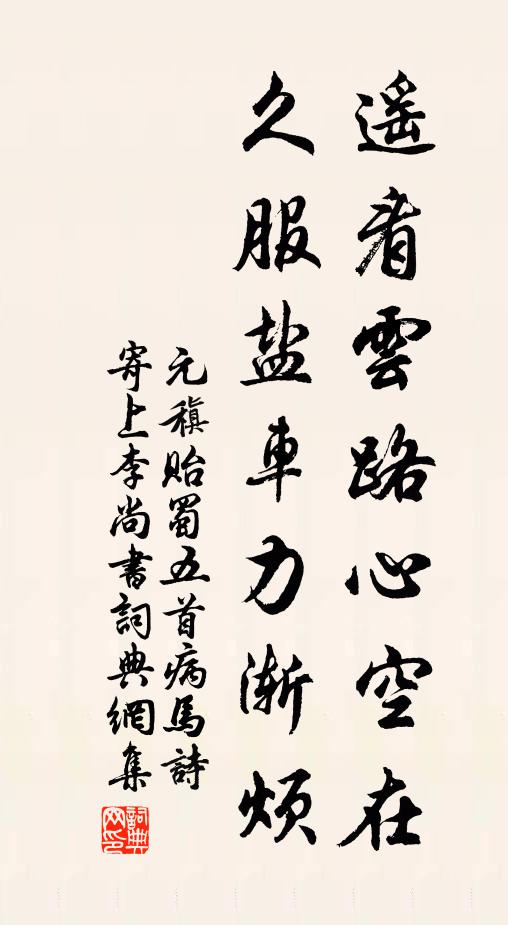 遥看雲路心空在
久服盐車力漸煩
元稹貽蜀五首病馬詩
寄上李尚書詞典網集
詞典網印